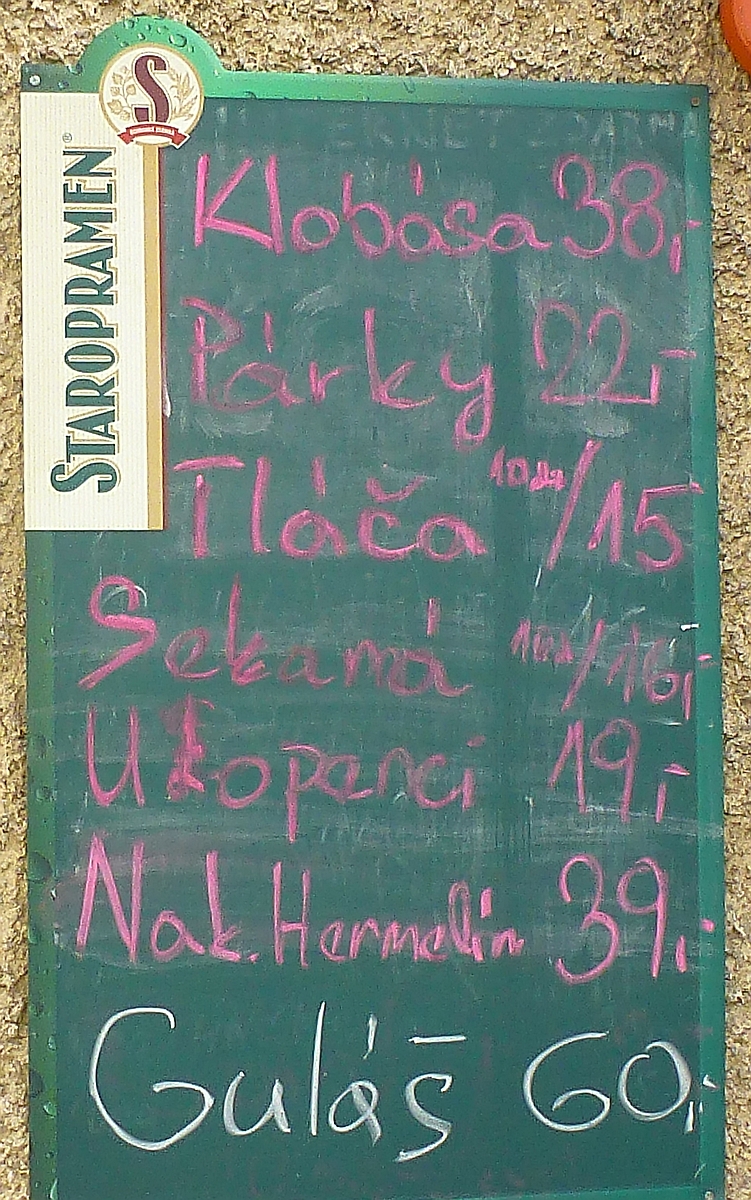 STAROPRAMEN®
S
Klobása 38,-
Párky 22,-
Tláča 10dkg/15
Sekaná /16,-
Utopenci 19,-
Nak. Hermelín 39,-
Guláš 60,-